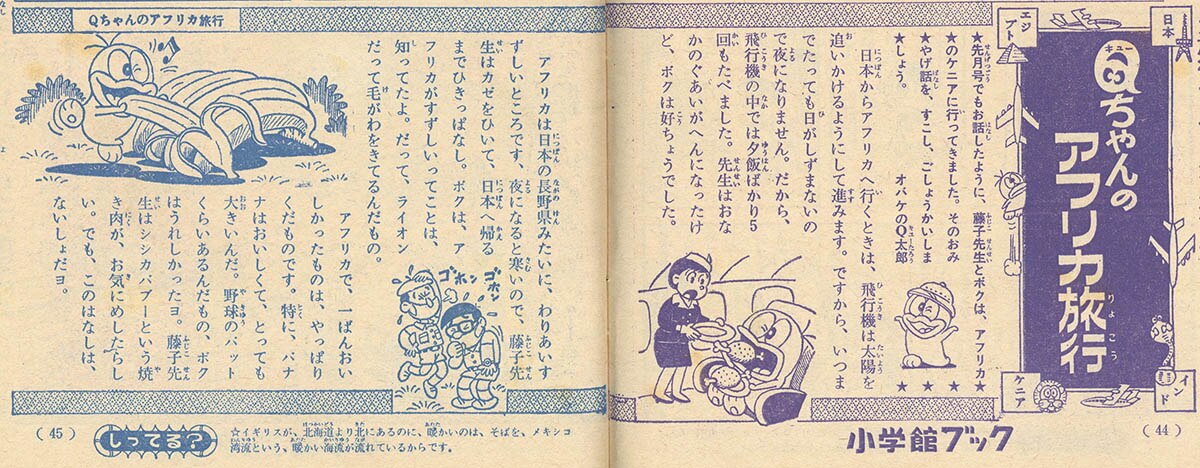 Qちゃんの
アフリカ旅行
日本
エジプト
ケニア
インド
★先月号でもお話したように、藤子先生とボクは、アフリカ
★のケニアに行ってきました。そのおみ
★やげ話を、すこし、ごしょうかいしま
★しょう。
オバケのQ太郎
日本からアフリカへ行くときは、飛行機は太陽を
追いかけるようにして進みます。ですから、いつま
でたっても日がしずまないの
で夜になりません。だから、
飛行機の中では夕飯ばかり5
回もたべました。先生はおな
かのぐあいがへんになったけ
ど、ボクは好ちょうでした。
小学館ブック
(44)
Qちゃんのアフリカ旅行
アフリカは日本の長野県みたいに、わりあいす
ずしいところです、夜になると寒いので、藤子先
生はカゼをひいて、日本へ帰る
までひきっぱなし。ボクは、ア
フリカがすずしいってことは、
知ってたよ。だって、ライオン
だって毛がわをきてるんだもの。
ゴホン
ゴホン
アフリカで、一ばんおい
しかったものは、やっぱり
くだものです。特に、バナ
ナはおいしくて、とっても
大きいんだ。野球のバット
くらいあるんだもの、ボク
はうれしかったヨ。藤子先
生はシシカバブーという焼
き肉が、お気にめしたらし
い。でも、このはなしは、
ないしょだヨ。
(45)
しってる?
☆イギリスが、北海道より北にあるのに、暖かいのは、そばを、メキシコ
湾流という、暖かい海流が流れているからです。